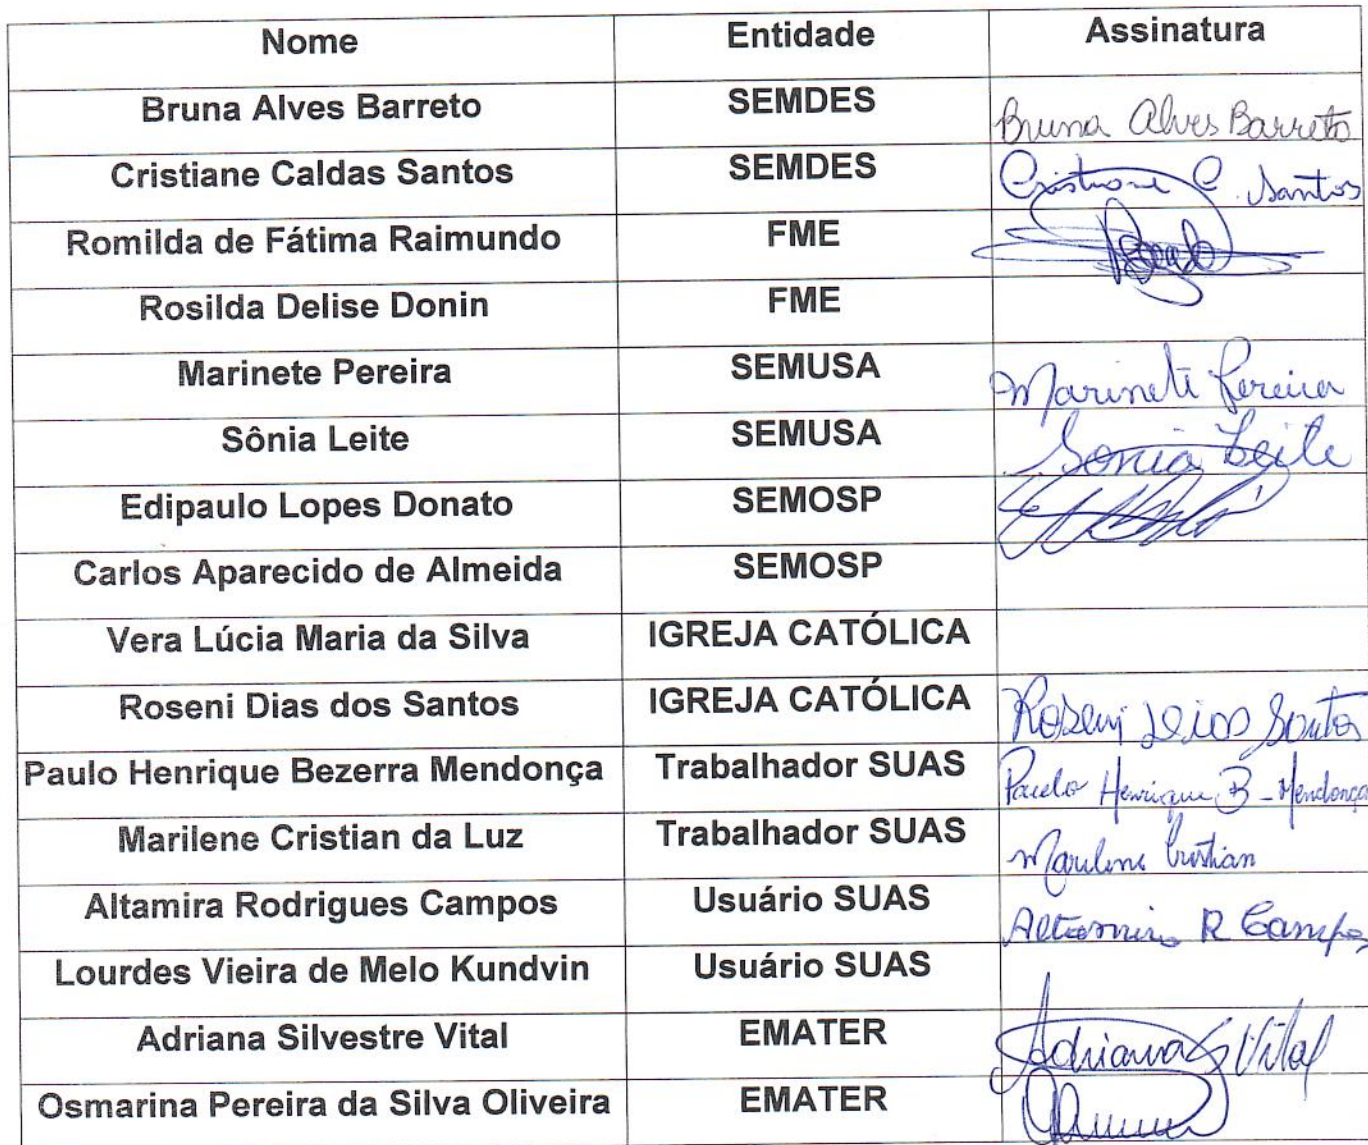 Nome Entidade Assinatura
Bruna Alves Barreto SEMDES Bruna Alves Barreto
Cristiane Caldas Santos SEMDES Cristiane C. Santos
Romilda de Fátima Raimundo FME
Rosilda Delise Donin FME
Marinete Pereira SEMUSA Marinete Pereira
Sônia Leite SEMUSA Sonia Leite
Edipaulo Lopes Donato SEMOSP
Carlos Aparecido de Almeida SEMOSP
Vera Lúcia Maria da Silva IGREJA CATÓLICA
Roseni Dias dos Santos IGREJA CATÓLICA Roseni Dias Santos
Paulo Henrique Bezerra Mendonça Trabalhador SUAS Paulo Henrique B - Mendonça
Marilene Cristian da Luz Trabalhador SUAS Marilene Cristian
Altamira Rodrigues Campos Usuário SUAS Altamira R Campos
Lourdes Vieira de Melo Kundvin Usuário SUAS
Adriana Silvestre Vital EMATER Adriana S Vital
Osmarina Pereira da Silva Oliveira EMATER